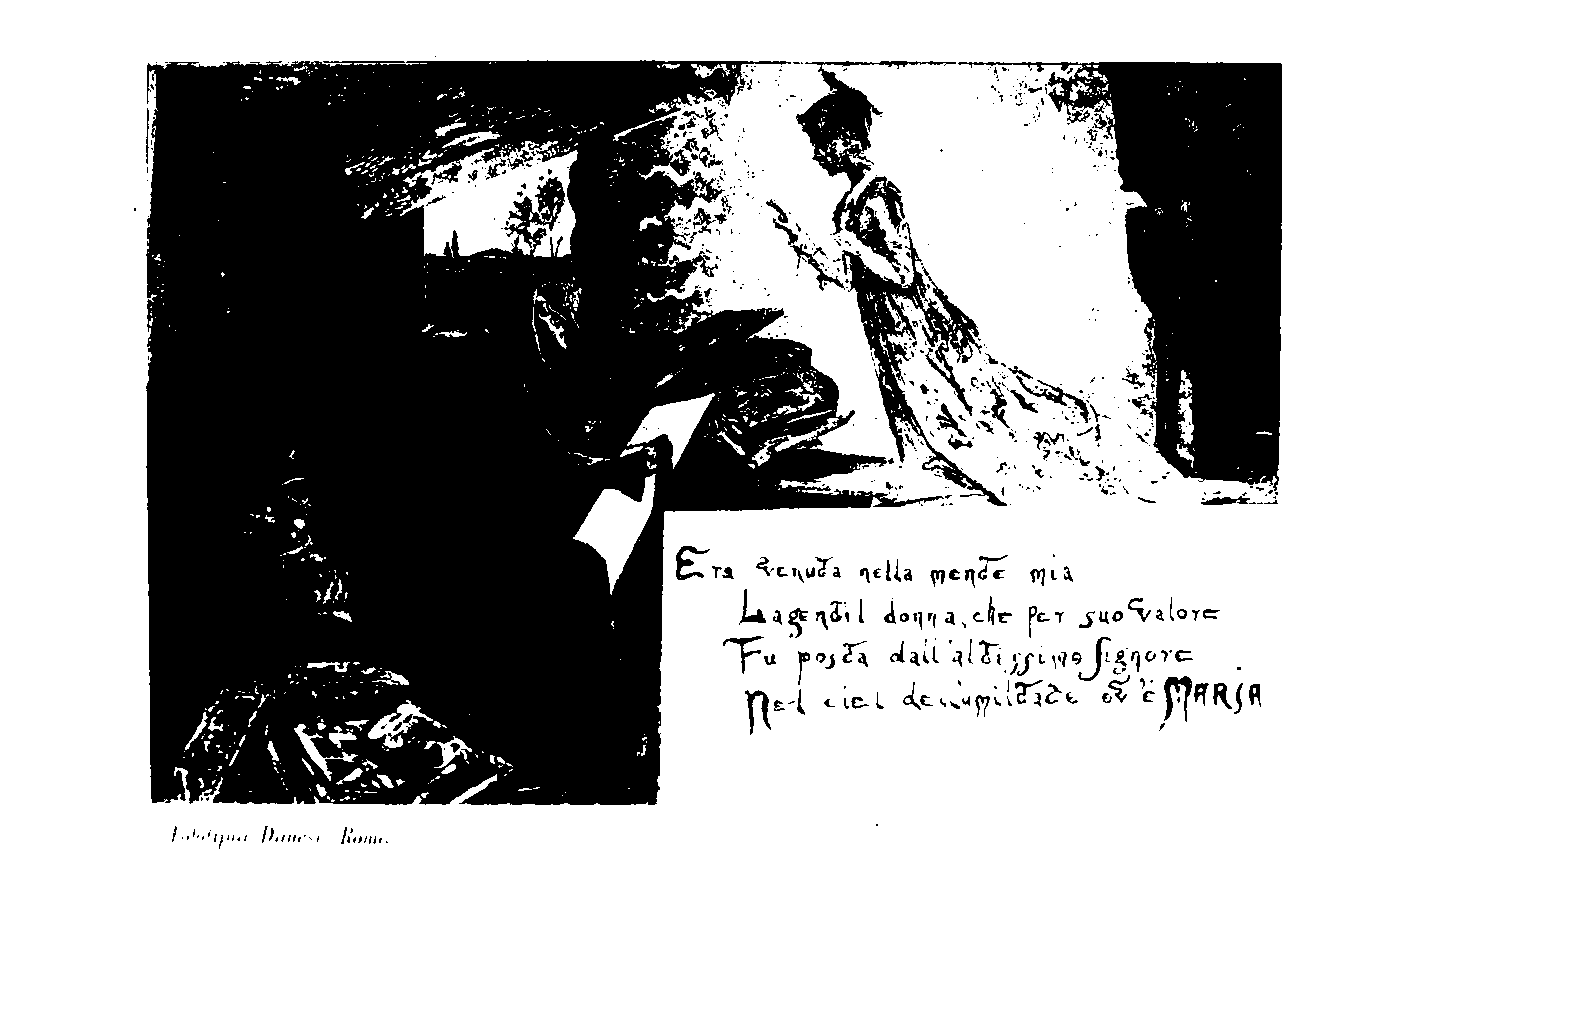 Era venuta nella mente mia
La gentil donna, che per suo valore
Fu posta dall'altissimo Signore
Nel ciel dell'umiltade ov'è MARIA
Danesi Roma.